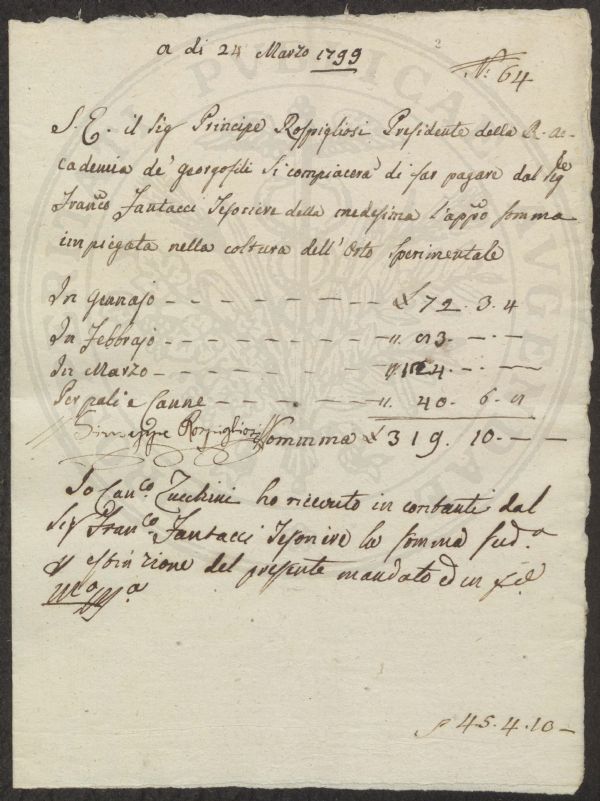 a di 24 Marzo 1799
N: 64
S. E. il Sig Principe Rospigliosi Presidente della R. Ac-
cademia de' Georgofili si compiacerà di far pagare dal Sig.re
Franco Fantacci Tesoriere della medesima l'appo somma
impiegata nella coltura dell'Orto Sperimentale
In Gennajo - - - - £ 72. 3. 4
In Febbrajo - - - - ". 83. - . -
In Marzo - - - - " 124. - . -
Per pali e Canne - - - ". 40. 6. 8
Giuseppe Rospigliosi Sommma £ 319. 10. - -
Io Canco. Zucchini ho ricevuto in contanti dal
Sig Franco. Fantacci Tesoriere la somma sud.a
estinzione del presente mandato ed in
mo pp.a
45. 4. 10 -